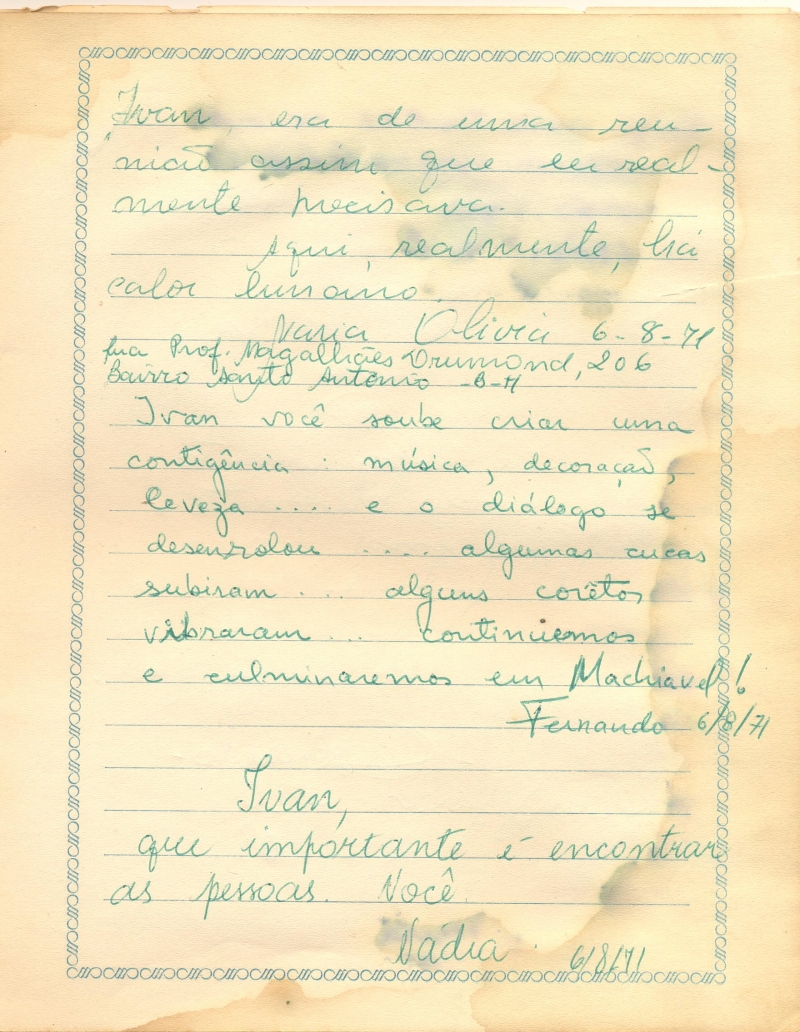 Ivan era de uma reu-
nião assim que eu real-
mente precisava.
Aqui, realmente, há
calor humano.
Maria Olivia 6-8-71
Rua Prof. Magalhães Drumond, 206
Bairro Santo Antonio -B-H
Ivan você soube criar uma
contigência : música, decoração,
leveza .... e o diálogo se
desenrolou .... algumas cucas
subiram ... alguns corêtos
vibraram ... continuemos
e culminaremos em Machiavel!
Fernando 6/8/71
Ivan,
que importante é encontrar
as pessoas. Você.
Nádia. 6/8/71